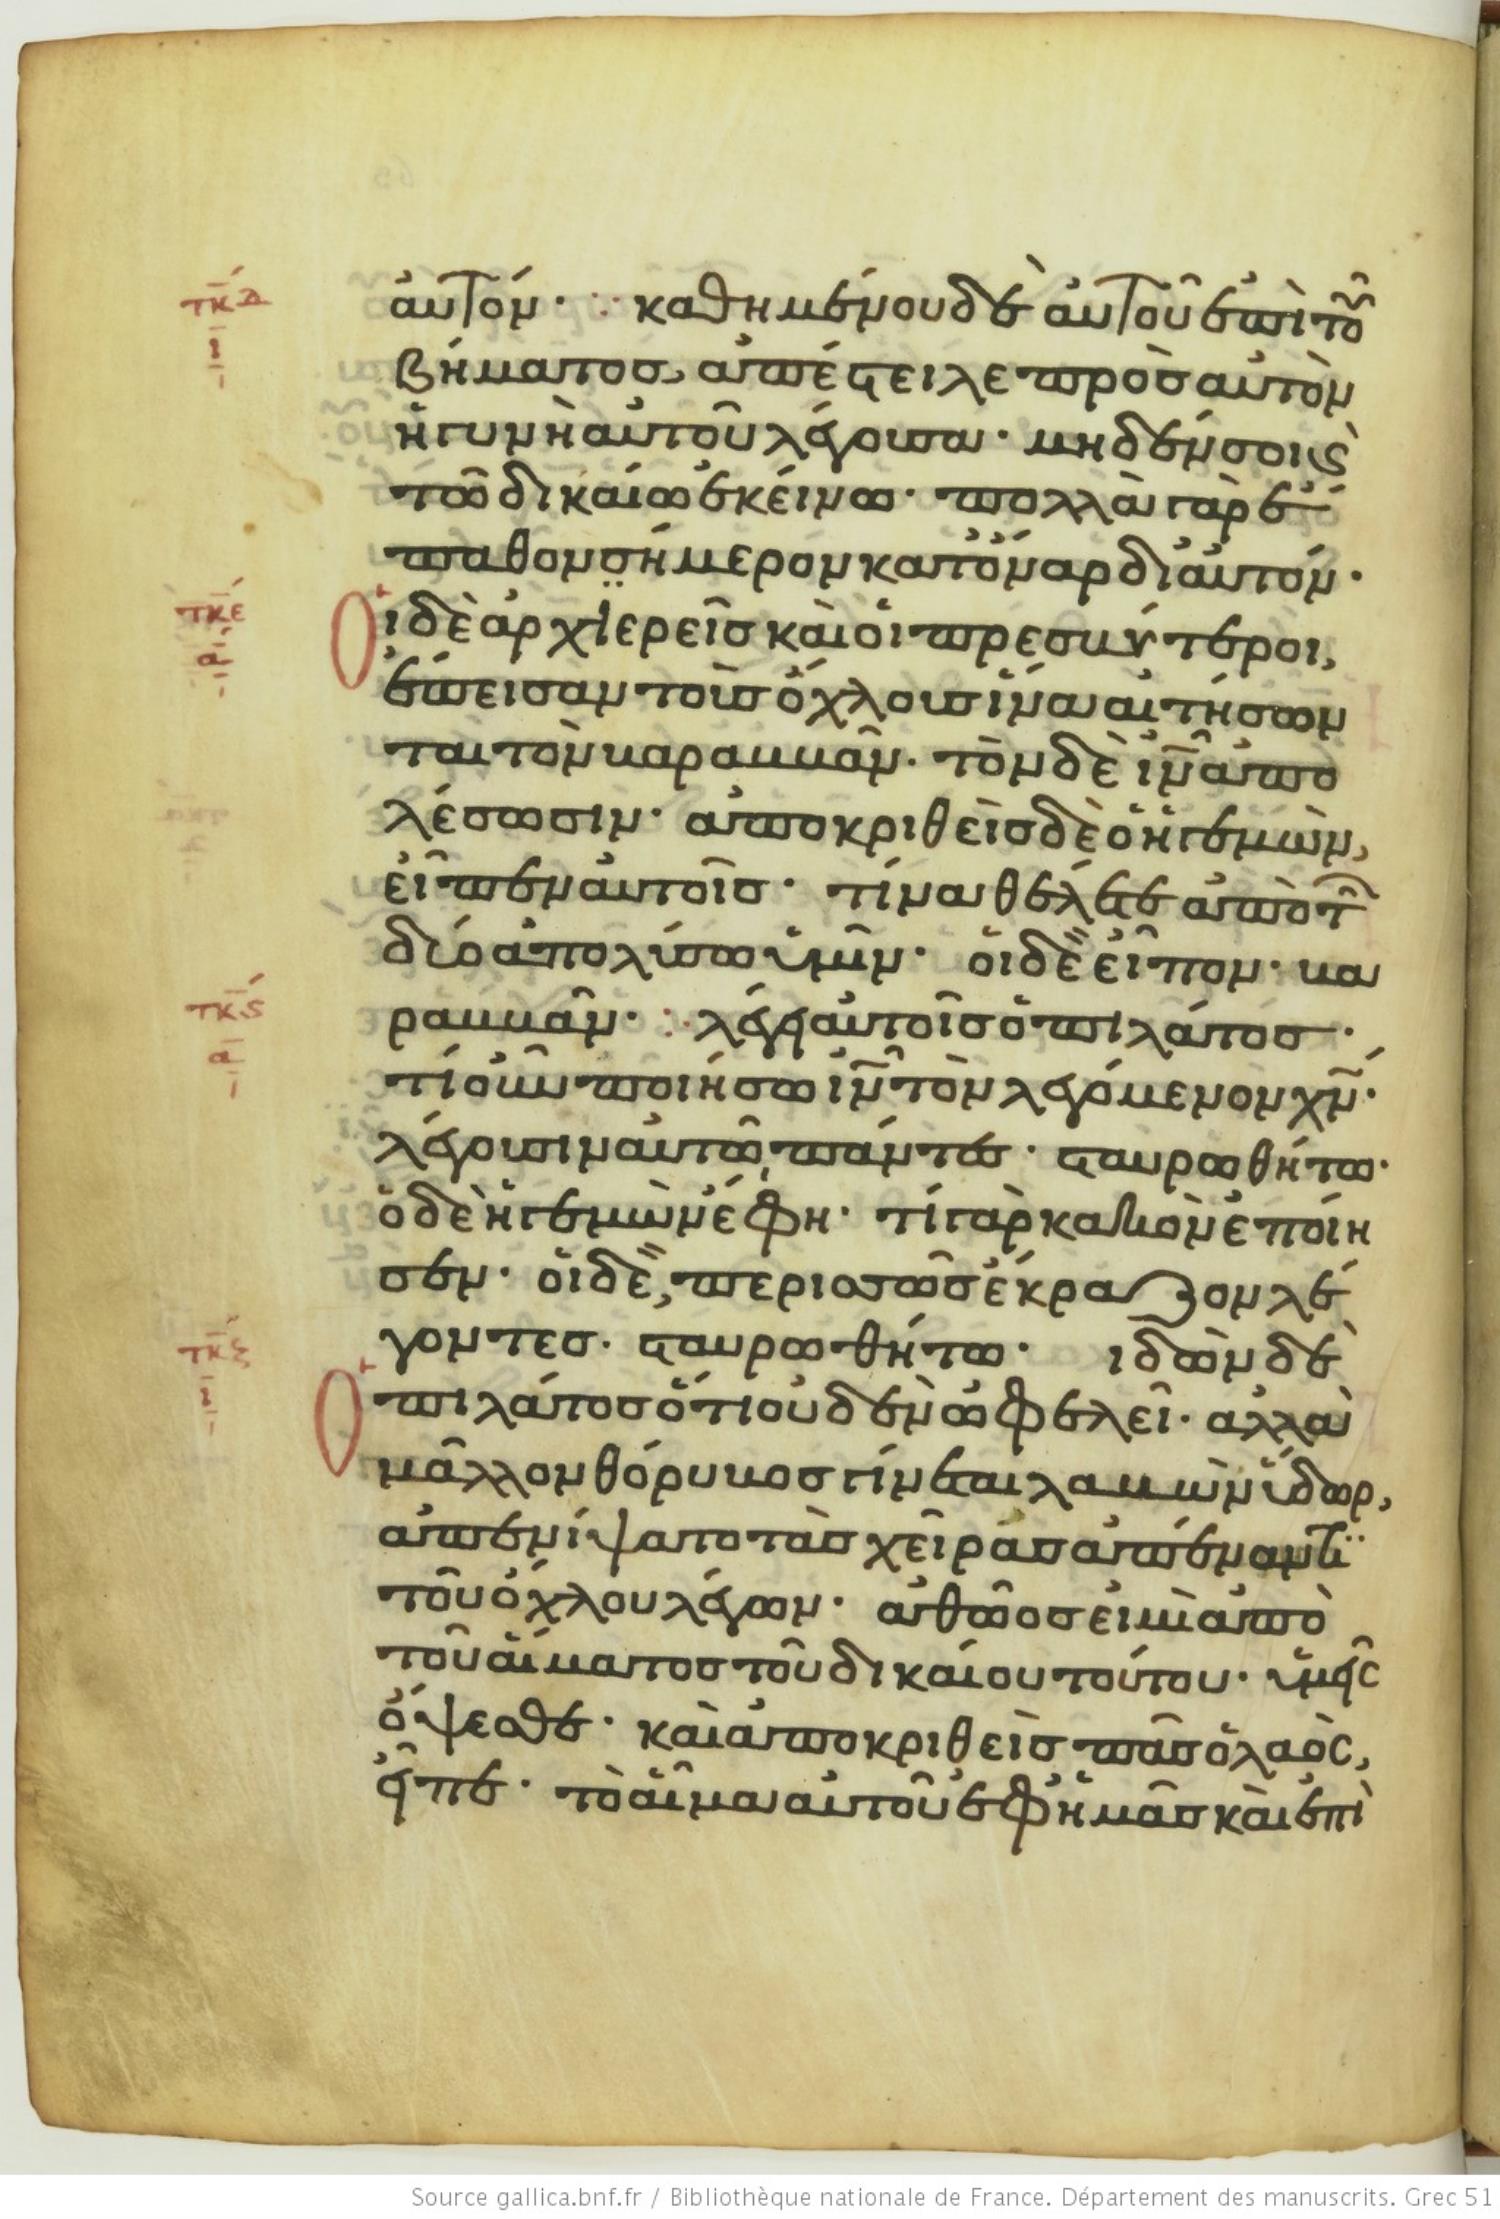 τκδ
ι
αὐτόν· καθημένου δὲ αὐτοῦ ἐπὶ τοῦ
βήματος, ἀπέστειλε πρὸς αὐτὸν
ἡ γυνὴ αὐτοῦ λέγουσα· μηδέν σοι ϗ
τῶ δικαίω ἐκείνω· πολλὰ γὰρ ἔ
παθον σήμερον κατόναρ δι αὐτόν·
τκε
α
Οἱ δὲ ἀρχϊερεῖς καὶ οἱ πρεσβύτεροι,
ἔπεισαν τοὺς ὄχλους ἵνα αἰτήσων
ται τὸν βαραββᾶν· τὸν δὲ ιν ἀπο
λέσωσιν· ἀποκριθεὶς δὲ ὁ ἡγεμὼν,
εἶπεν αὐτοῖς· τίνα θέλετε ἀπὸ τῶν
δύο ἀπολύσω ὑμῖν· οἱ δὲ εἶπον· βα
ραββᾶν·
τκς
α
λέγει αὐτοῖς ὁ πιλάτος·
τί οὖν ποιήσω ιν τὸν λεγόμενον χν·
λέγουσιν αὐτῶ, πάντες· σταυρωθήτω·
ὁ δὲ ἡγεμὼν ἔφη· τί γὰρ κακὸν ἐποίη
σεν· οἱ δὲ, περισσῶς ἔκραζον λέ
γοντες· σταυρωθήτω· ἰδὼν δὲ
τκζ
ι
Ὁ πιλάτος ὅτι οὐδὲν ὠφελεῖ· ἀλλὰ
μᾶλλον θόρυβος γίνεται λαβὼν ὕδωρ,
ἀπενίψατο τὰς χεῖρας ἀπέναντι
τοῦ ὄχλου λέγων· ἀθῶος εἰμὶ ἀπὸ
τοῦ αἵματος τοῦ δικαίου τούτου· ὑμεῖς
ὄψεσθε· καὶ ἀποκριθεὶς πᾶς ὁ λαὸς,
εἶπε· τὸ αἷμα αὐτοῦ ἐφ ἡμᾶς καὶ ἐπὶ
Source gallica.bnf.fr / Bibliothèque nationale de France. Département des manuscrits. Grec 51